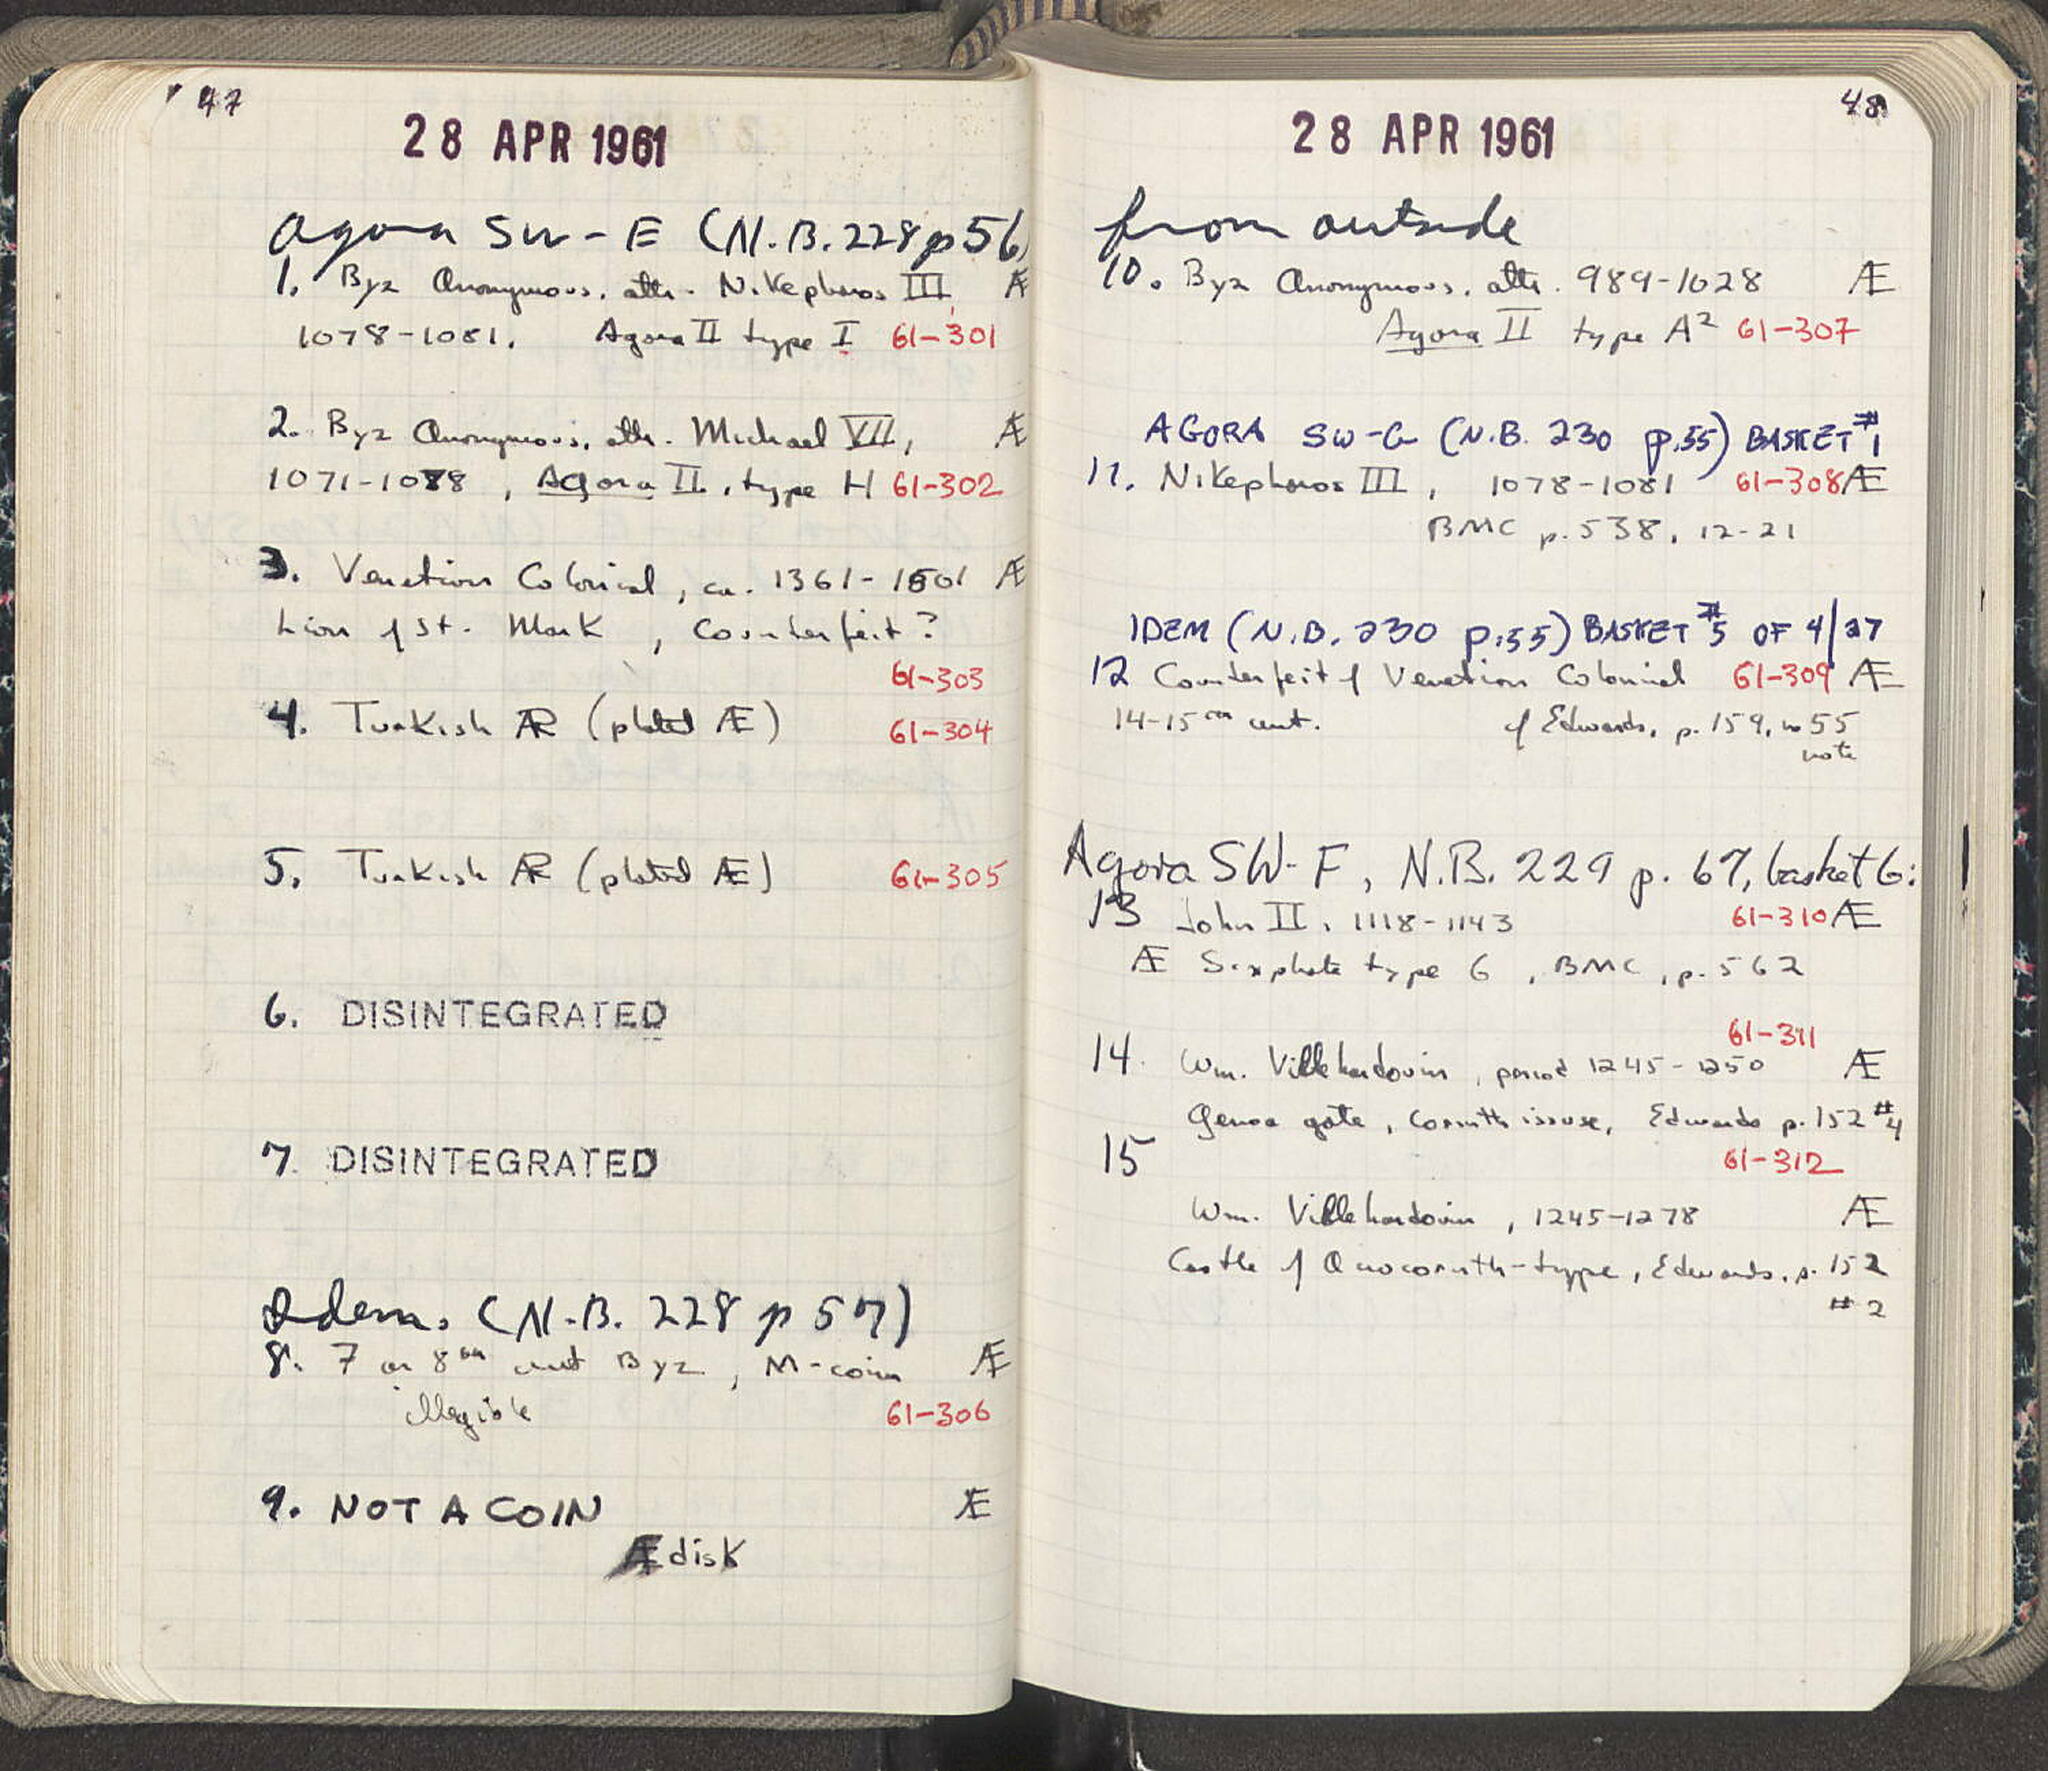 47
28 APR 1961
Agora SW-E (N.B. 228 p 56)
1. Byz Anonymous, attr. Nikephoros III, Æ
1078-1081. Agora II type I 61-301
2. Byz Anonymous, attr. Michael VII, Æ
1071-1078, Agora II, type H 61-302
3. Venetian Colonial, ca. 1361-1501 Æ
Lion of St. Mark, Counterfeit?
61-303
4. Turkish AR (plated Æ) 61-304
5. Turkish AR (plated Æ) 61-305
6. DISINTEGRATED
7. DISINTEGRATED
Idem. (N.B. 228 p 57)
8. 7 or 8th cent Byz, M-coin Æ
illegible 61-306
9. NOT A COIN Æ
Æ disk
48
28 APR 1961
from outside
10. Byz Anonymous, attr. 989-1028 Æ
Agora II type A2 61-307
AGORA SW-G (N.B. 230 p.55) BASKET #1
11. Nikephoros III, 1078-1081 61-308 Æ
BMC p. 538, 12-21
IDEM (N.B. 230 p.55) BASKET #5 OF 4/27
12 Counterfeit of Venetian Colonial 61-309 Æ
14-15th cent. cf Edwards, p. 159, no 55
note
Agora SW-F, N.B. 229 p. 67, basket 6:
13 John II, 1118-1143 61-310 Æ
Æ Scyphate type 6, BMC, p. 562
61-311
14. Wm. Villehardouin, period 1245-1250 Æ
Genoa gate, Corinth issue, Edwards p. 152 #4
15 61-312
Wm. Villehardouin, 1245-1278 Æ
Castle of Acrocorinth-type, Edwards, p. 152
#2